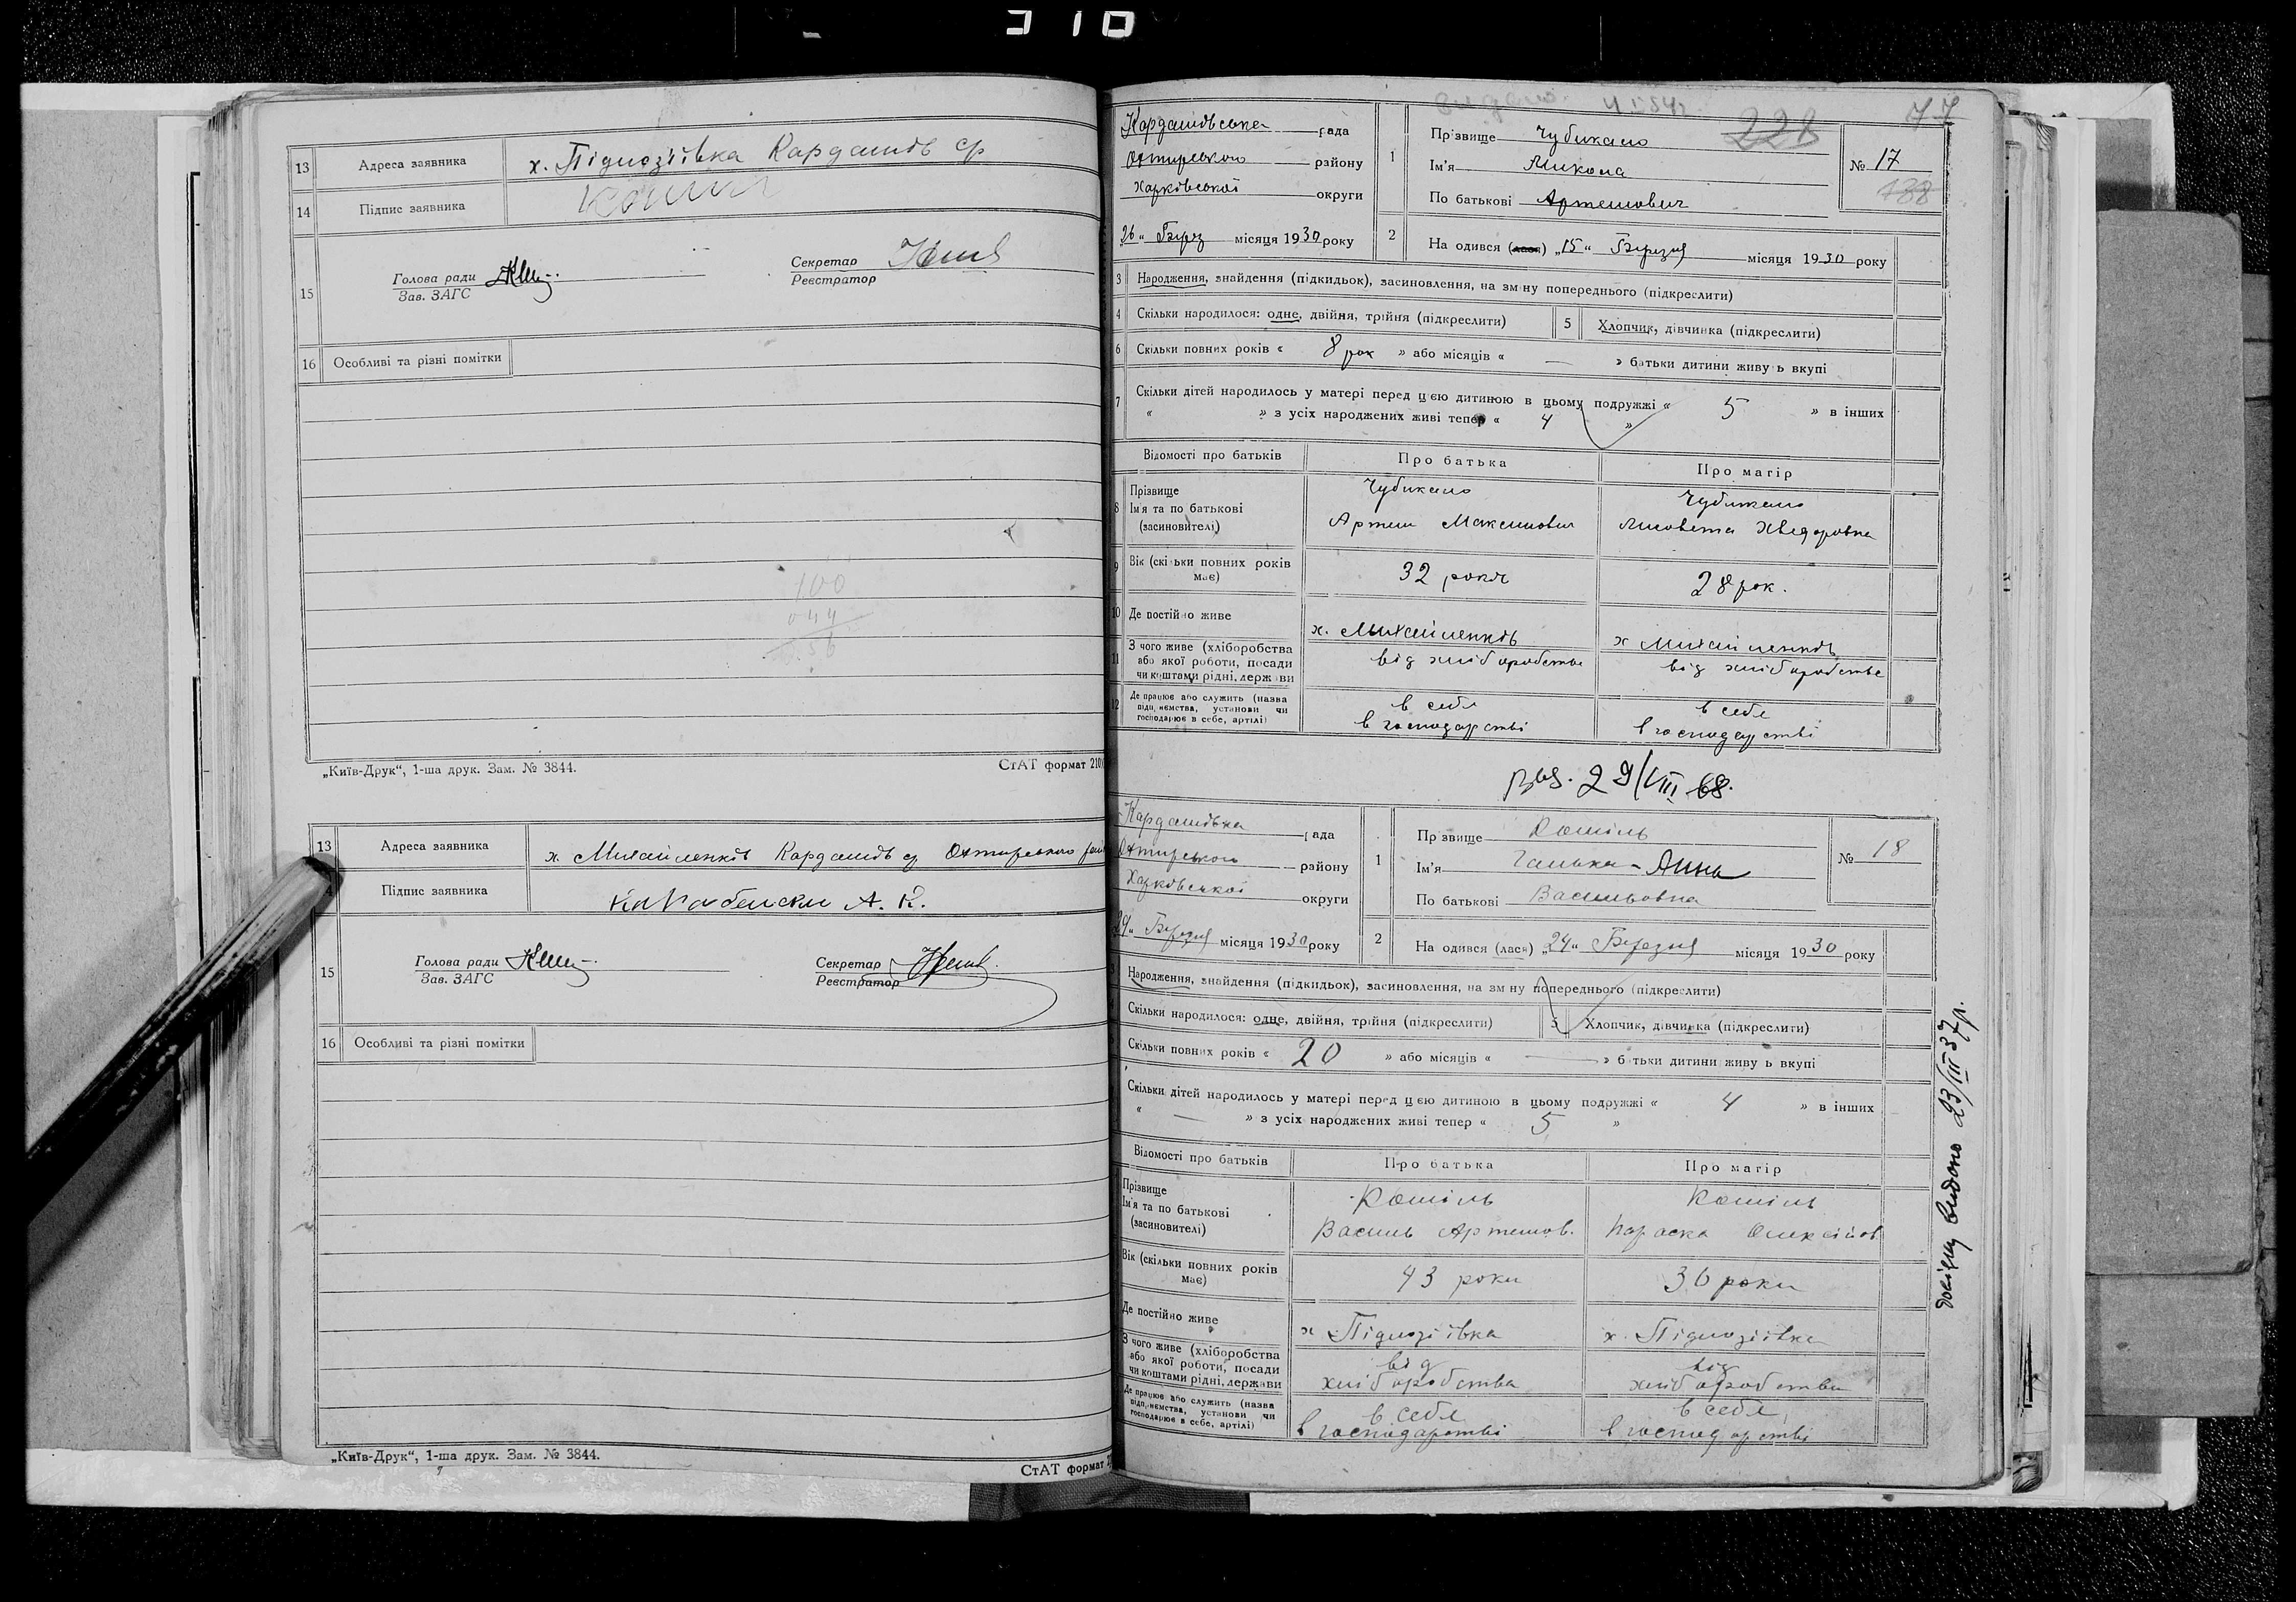 310
13 Адреса заявника х. Підлозіївка Кардашів ср
14 Підпис заявника
15 Голова ради
Зав. ЗАГС
Секретар
Реєстратор
16 Особливі та різні помітки
100
044
56
„Київ-Друк“, 1-ша друк. Зам. № 3844.
СтАТ формат 210
13 Адреса заявника х. Михайленків Кардашів ср Охтирського
Підпис заявника
15 Голова ради
Зав. ЗАГС
Секретар
Реєстратор
16 Особливі та різні помітки
„Київ-Друк“, 1-ша друк. Зам. № 3844.
СтАТ формат
228
77
Кардашівська рада
Охтирського району
Харківської округи
26 „ Берез місяця 1930 року
1 Прізвище Чубикало
Ім'я Микола
По батькові Артемович
№ 17
2 На одився (лася) „15“ Березня місяця 1930 року
3 Народження, знайдення (підкидьок), засиновлення, на зм ну попереднього (підкреслити)
4 Скільки народилося: одне, двійня, трійня (підкреслити) 5 Хлопчик, дівчинка (підкреслити)
6 Скільки повних років « 8 рок » або місяців « — » батьки дитини живу ь вкупі
7 Скільки дітей народилось у матері перед цією дитиною в цьому подружжі « 5 » в інших
« » з усіх народжених живі тепер « 4 »
Відомості про батьків Про батька Про матір
8 Прізвище Чубикало Чубикало
Ім'я та по батькові
(засиновителі) Артем Максимович Лисовета Хведоровна
9 Вік (скільки повних років має) 32 років 28 рок.
10 Де постійно живе х. Михайленків х Михайленків
11 З чого живе (хліборобства або якої роботи, посади чи коштами рідні, держави від хліборобства від хліборобства
12 Де працює або служить (назва підприємства, установи чи господарює в себе, артілі) в себе в господарстві в себе в господарстві
29/VIII 68.
Кардашівка рада
Охтирського району
Харківської округи
29 „ Березня місяця 1930 року
1 Пр звище Кошіль
Ім'я Галька - Анна
По батькові Васильовна
№ 18
2 На одився (лася) „24“ Березня місяця 1930 року
Народження, знайдення (підкидьок), засиновлення, на зм ну попереднього (підкреслити)
Скільки народилося: одне, двійня, трійня (підкреслити) 5 Хлопчик, дівчинка (підкреслити)
Скільки повних років « 20 » або місяців « — » батьки дитини живу ь вкупі
Скільки дітей народилось у матері перед цією дитиною в цьому подружжі « 4 » в інших
« — » з усіх народжених живі тепер « 5 »
Відомості про батьків Про батька Про матір
Прізвище Кошіль Кошіль
Ім'я та по батькові
(засиновителі) Василь Артемов. Параска Олексійов
Вік (скільки повних років має) 43 роки 36 роки
Де постійно живе х Підлозіївка х. Підлозіївка
З чого живе (хліборобства або якої роботи, посади чи коштами рідні, держави від хліборобства від хліборобства
Де працює або служить (назва підприємства, установи чи господарює в себе, артілі) в себе в господарстві в себе в господарстві
видано 23/III 37 р.